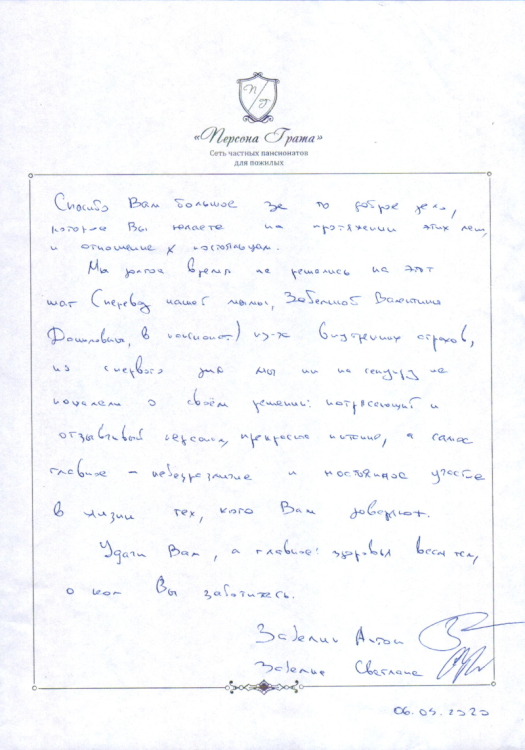 «Персона Грата»
Сеть частных пансионатов
для пожилых
Спасибо Вам большое за то доброе дело,
которое Вы делаете на протяжении этих лет,
и отношение к постояльцам.
Мы долгое время не решались на этот
шаг (перевод нашей мамы, Забелиной Валентины
в пансионат) из-за внутренних страхов,
но с первого дня мы ни на секунду не
пожалели о своём решении: потрясающий и
отзывчивый персонал, прекрасное питание, а самое
главное – небезразличие и постоянное участие
в жизни тех, кого Вам доверяют.
Удачи Вам, а главное: здоровья всем тем,
о ком Вы заботитесь.
Забелин Антон
Забелина Светлана
06.05.2020